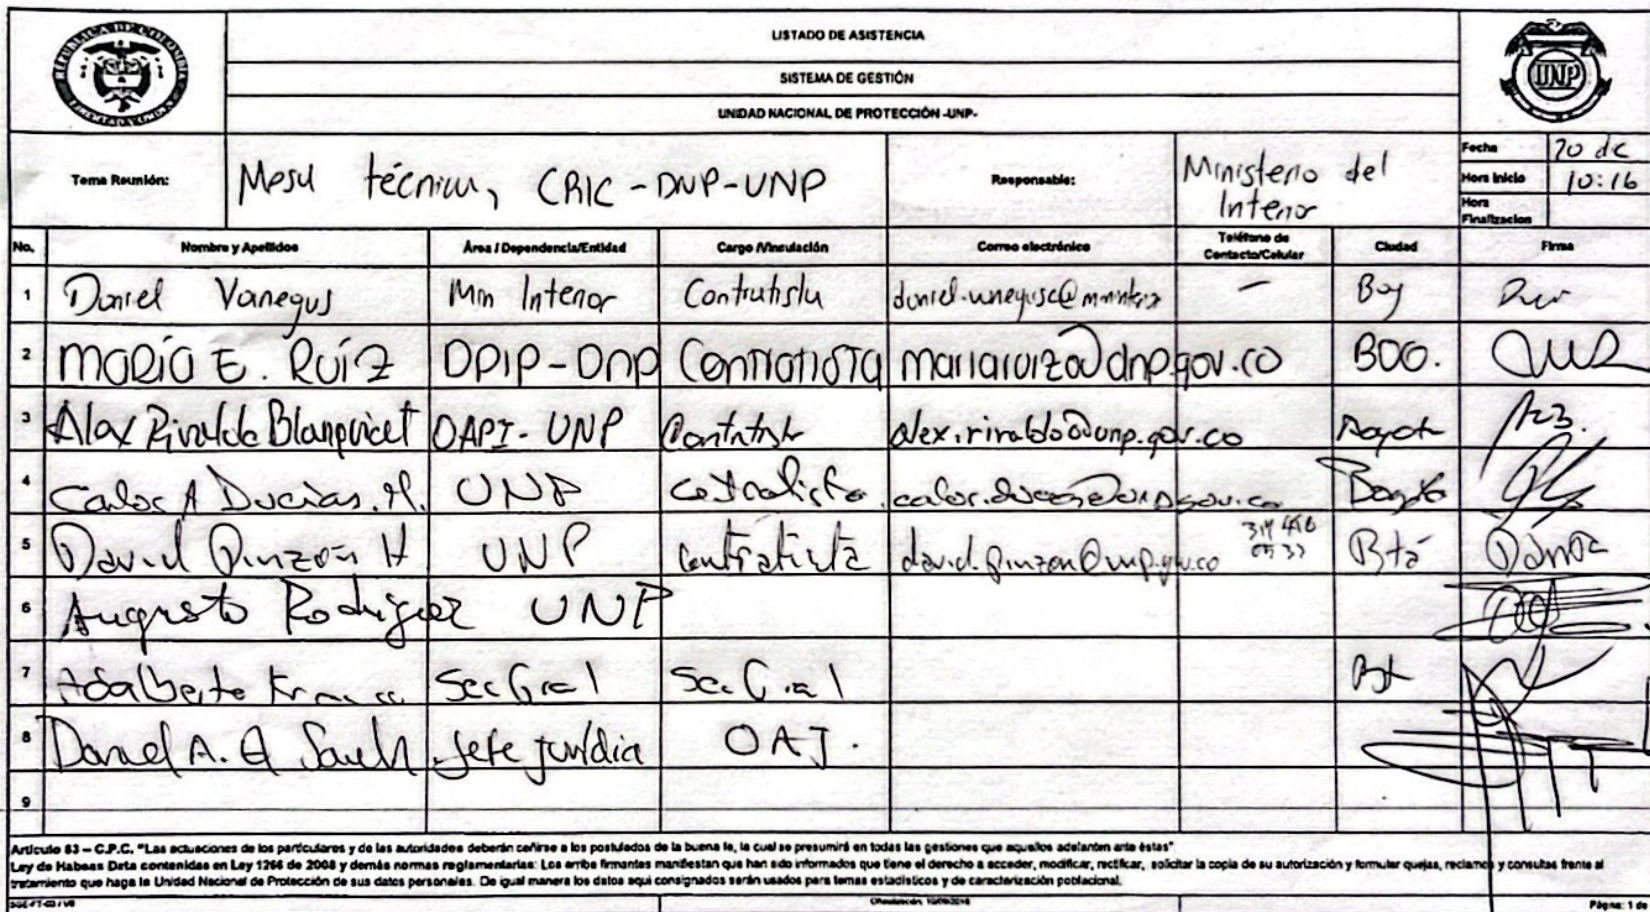 REPUBLICA DE COLOMBIA
LISTADO DE ASISTENCIA
SISTEMA DE GESTIÓN
UNIDAD NACIONAL DE PROTECCIÓN -UNP-
UNP
Tema Reunión: Mesa técnica, CRIC-DNP-UNP Responsable: Ministerio del Interior
Fecha 20 de
Hora Inicio 10:16
Hora Finalizacion
No. Nombre y Apellidos Área / Dependencia/Entidad Cargo /Vinculación Correo electrónico Teléfono de Contacto/Celular Ciudad Firma
1 Daniel Vanegas Min Interior Contratista — Bog
2 MARÍA E. RUÍZ DPIP-DNP Contratista mariaruiza@dnp.gov.co BOG.
3 Alex Rivaldo Blanquicet OAPI-UNP Contratista alex.rivaldo@unp.gov.co Bogota
4 Carlos A UNP Contratista Bogotá
5 David Pinzón H UNP Contratista david.pinzon@unp.gov.co Btá
6 Augusto Rodríguez UNP
7 Adalberto Sec Gral Sec Gral Bgt
8 Daniel A. Jefe jurídia OAJ.
9
Artículo 83 – C.P.C. "Las actuaciones de los particulares y de las autoridades deberán ceñirse a los postulados de la buena fe, la cual se presumirá en todas las gestiones que aquellos adelanten ante éstas"
Ley de Habeas Data contenidas en Ley 1266 de 2008 y demás normas reglamentarias: Los arriba firmantes manifiestan que han sido informados que tiene el derecho a acceder, modificar, rectificar, solicitar la copia de su autorización y formular quejas, reclamos y consultas frente al
tratamiento que haga la Unidad Nacional de Protección de sus datos personales. De igual manera los datos aquí consignados serán usados para temas estadísticos y de caracterización poblacional.
Página: 1 de